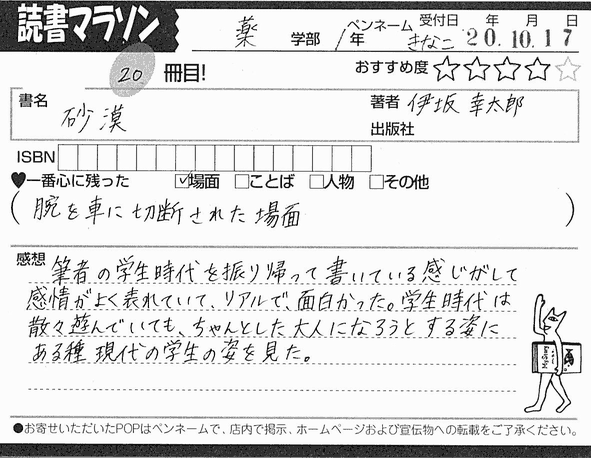 読書マラソン
薬 学部 1年 ペンネーム きなこ 受付日 年 月 日 20.10.17
20 冊目! おすすめ度 ☆☆☆☆☆
書名 砂漠 著者 伊坂 幸太郎
出版社
ISBN
♥一番心に残った ☑場面 □ことば □人物 □その他
(腕を車に切断された場面)
感想 筆者の学生時代を振り帰って書いている感じがして
感情がよく表れていて、リアルで、面白かった。学生時代は
散々遊んでいても、ちゃんとした大人になろうとする姿に
ある種 現代の学生の姿を見た。
●お寄せいただいたPOPはペンネームで、店内で掲示、ホームページおよび宣伝物への転載をご了承ください。